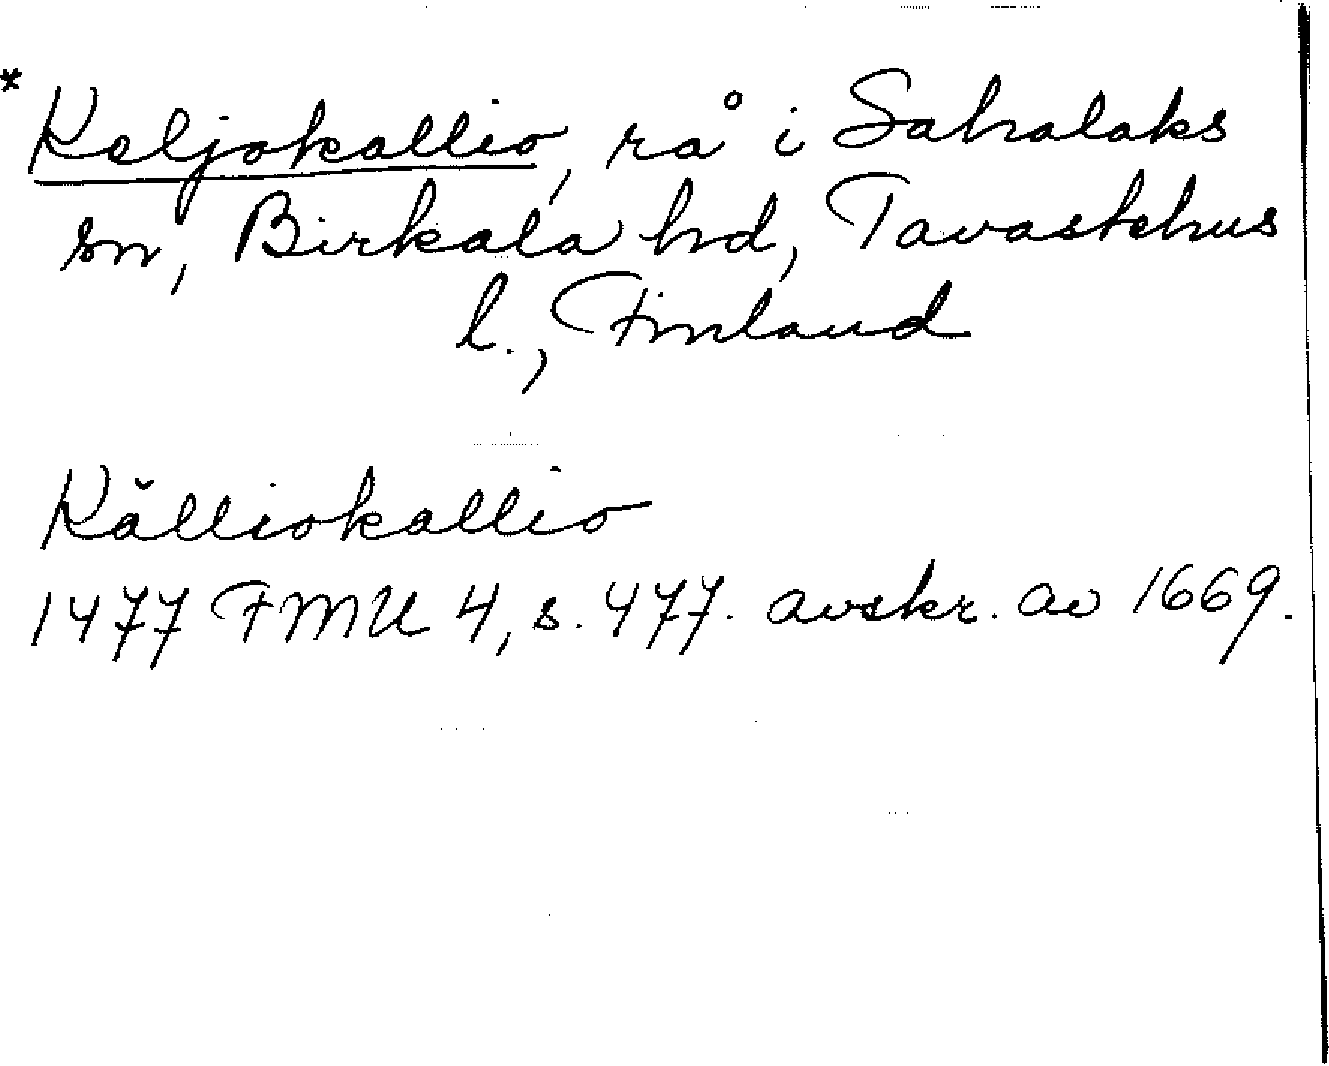 * Keljokallio, rå i Sahalaks
sn, Birkala hd, Tavastehus
l., Finland
Källiokallio
1477 FMU 4, s. 477. avskr. av 1669.